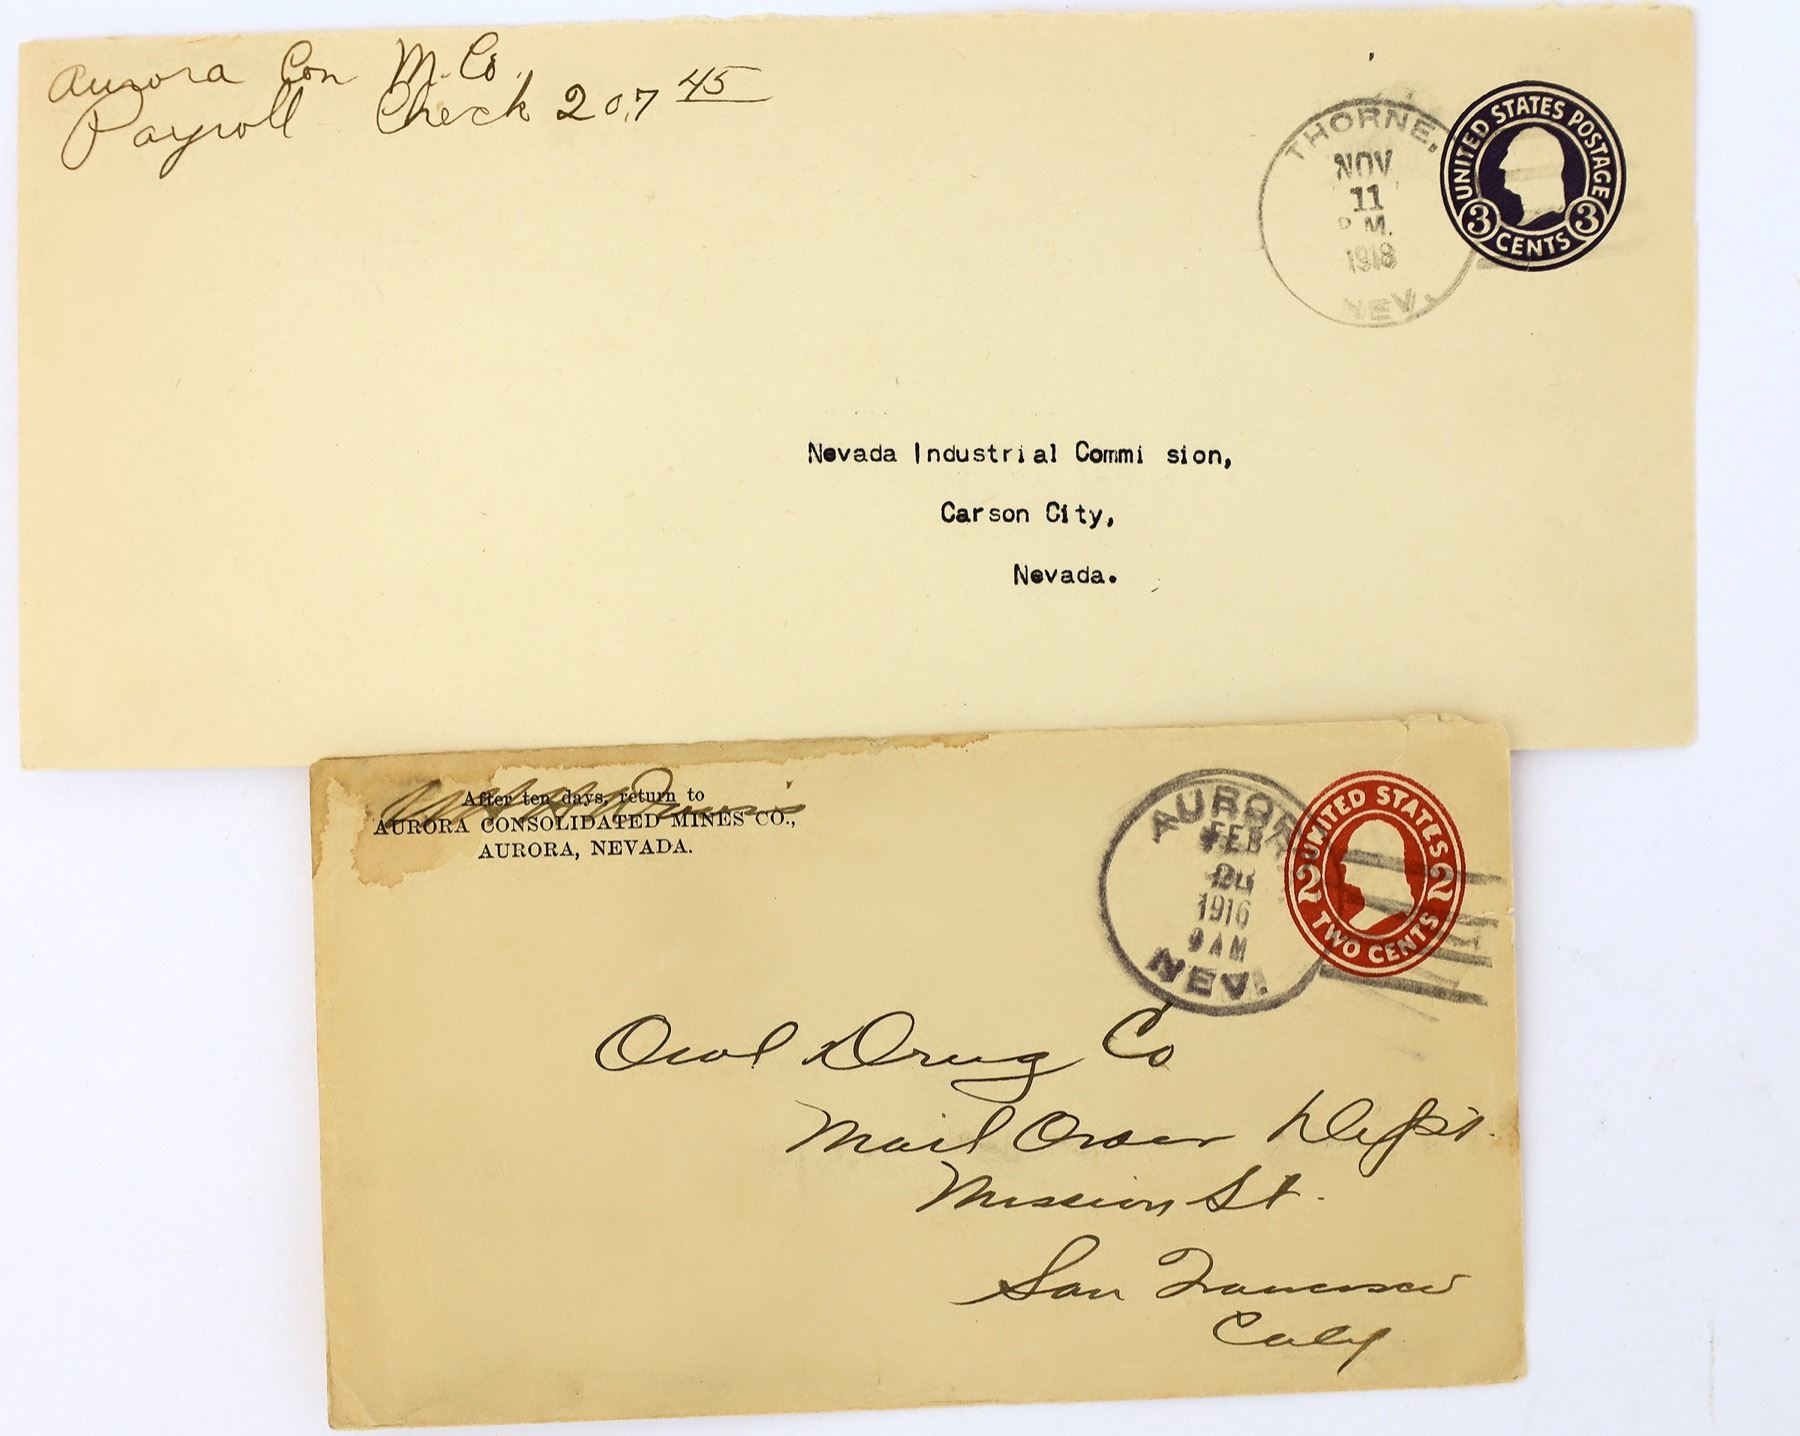 Aurora Con M. Co.
Payroll Check 207 45
THORNE,
NOV
11
P M.
1918
NEV.
UNITED STATES POSTAGE
3 CENTS 3
Nevada Industrial Commi sion,
Carson City,
Nevada.
After ten days, return to
AURORA CONSOLIDATED MINES CO.,
AURORA, NEVADA.
AUROR
FEB
1916
9 AM
NEV.
UNITED STATES
2 TWO CENTS 2
Owl Drug Co
Mail Order Dept.
Mission St.
San Francisco
Calif